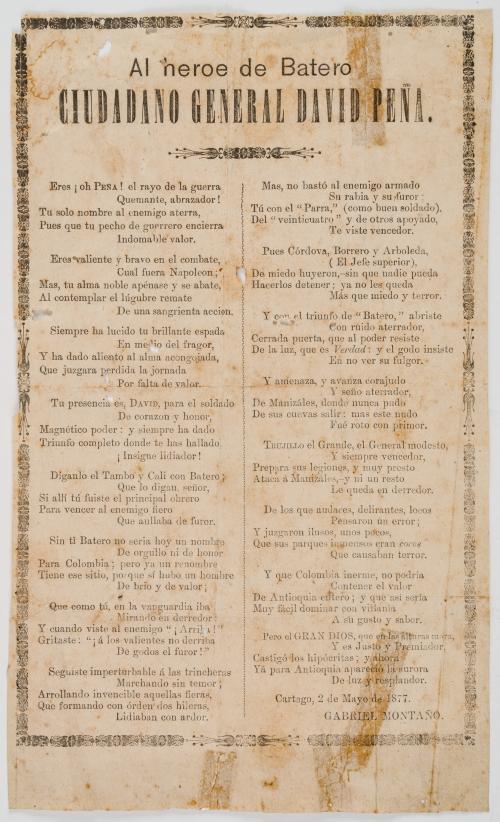 Al heroe de Batero
CIUDADANO GENERAL DAVID PEÑA.
Eres ¡ oh PEÑA ! el rayo de la guerra
Quemante, abrazador !
Tu solo nombre al enemigo aterra,
Pues que tu pecho de guerrero encierra
Indomable valor.
Eres valiente y bravo en el combate,
Cual fuera Napoleon;
Mas, tu alma noble apénase y se abate,
Al contemplar el lúgubre remate
De una sangrienta accion.
Siempre ha lucido tu brillante espada
En medio del fragor,
Y ha dado aliento al alma acongojada,
Que juzgara perdida la jornada
Por falta de valor.
Tu presencia es, DAVID, para el soldado
De corazon y honor,
Magnético poder: y siempre ha dado
Triunfo completo donde te has hallado,
¡ Insigne lidiador !
Díganlo el Tambo y Cali con Batero;
Que lo digan, señor,
Si allí tú fuiste el principal obrero
Para vencer al enemigo fiero
Que aullaba de furor.
Sin ti Batero no seria hoy un nombre
De orgullo ni de honor
Para Colombia; pero ya un renombre
Tiene ese sitio, porque si hubo un hombre
De brío y de valor;
Que como tú, en la vanguardia iba
Mirando en derredor:
Y cuando viste al enemigo "¡ Arriba !"
Gritaste: "¡á los valientes no derriba
De godos el furor!"
Seguiste imperturbable á las trincheras
Marchando sin temor;
Arrollando invencible aquellas fieras,
Que formando con órden dos hileras,
Lidiaban con ardor.
Mas, no bastó al enemigo armado
Su rabia y su furor:
Tú con el "Parra," (como buen soldado),
Del "veinticuatro" y de otros apoyado,
Te viste vencedor.
Pues Córdova, Borrero y Arboleda,
( El Jefe superior),
De miedo huyeron, sin que nadie pueda
Hacerlos detener; ya no les queda
Más que miedo y terror.
Y con el triunfo de "Batero," abriste
Con ruido aterrador,
Cerrada puerta, que al poder resiste
De la luz, que es Verdad: y el godo insiste
En no ver su fulgor.
Y amenaza, y avanza corajudo
Y seño aterrador,
De Manizáles, donde nunca pudo
De sus cuevas salir: mas este nudo
Fué roto con primor.
TRUJILLO el Grande, el General modesto,
Y siempre vencedor,
Prepara sus legiones, y muy presto
Ataca á Manizáles,—y ni un resto
Le queda en derredor.
De los que audaces, delirantes, locos
Pensaron un error;
Y juzgaron ilusos, unos pocos,
Que sus parques inmensos eran cocos
Que causaban terror.
Y que Colombia inerme, no podria
Contener el valor
De Antioquia entero; y que así seria
Muy fácil dominar con villanía
A su gusto y sabor.
Pero el GRAN DIOS, que en las alturas mora,
Y es Justo y Premiador,
Castigó los hipócritas; y ahora
Yá para Antioquia apareció la aurora
De luz y resplandor.
Cartago, 2 de Mayo de 1877.
GABRIEL MONTAÑO.